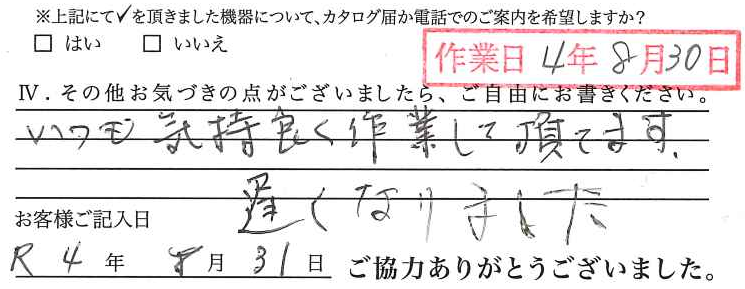 ※上記にて✓を頂きました機器について、カタログ届か電話でのご案内を希望しますか?
□ はい □ いいえ
作業日 4年 8月30日
Ⅳ．その他お気づきの点がございましたら、ご自由にお書きください。
いつも気持良く作業して頂てます.
遅くなりました
お客様ご記入日
R 4 年 8 月 31 日 ご協力ありがとうございました。